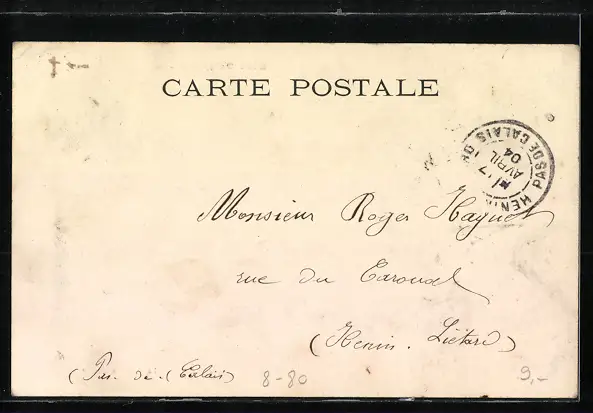 CARTE POSTALE
HENIN PAS DE CALAIS
17
AVRIL
04
Monsieur Roger Haguet
rue du Carousel
(Henin. Liétard)
(Pas. de. Calais)
8-80
9,-